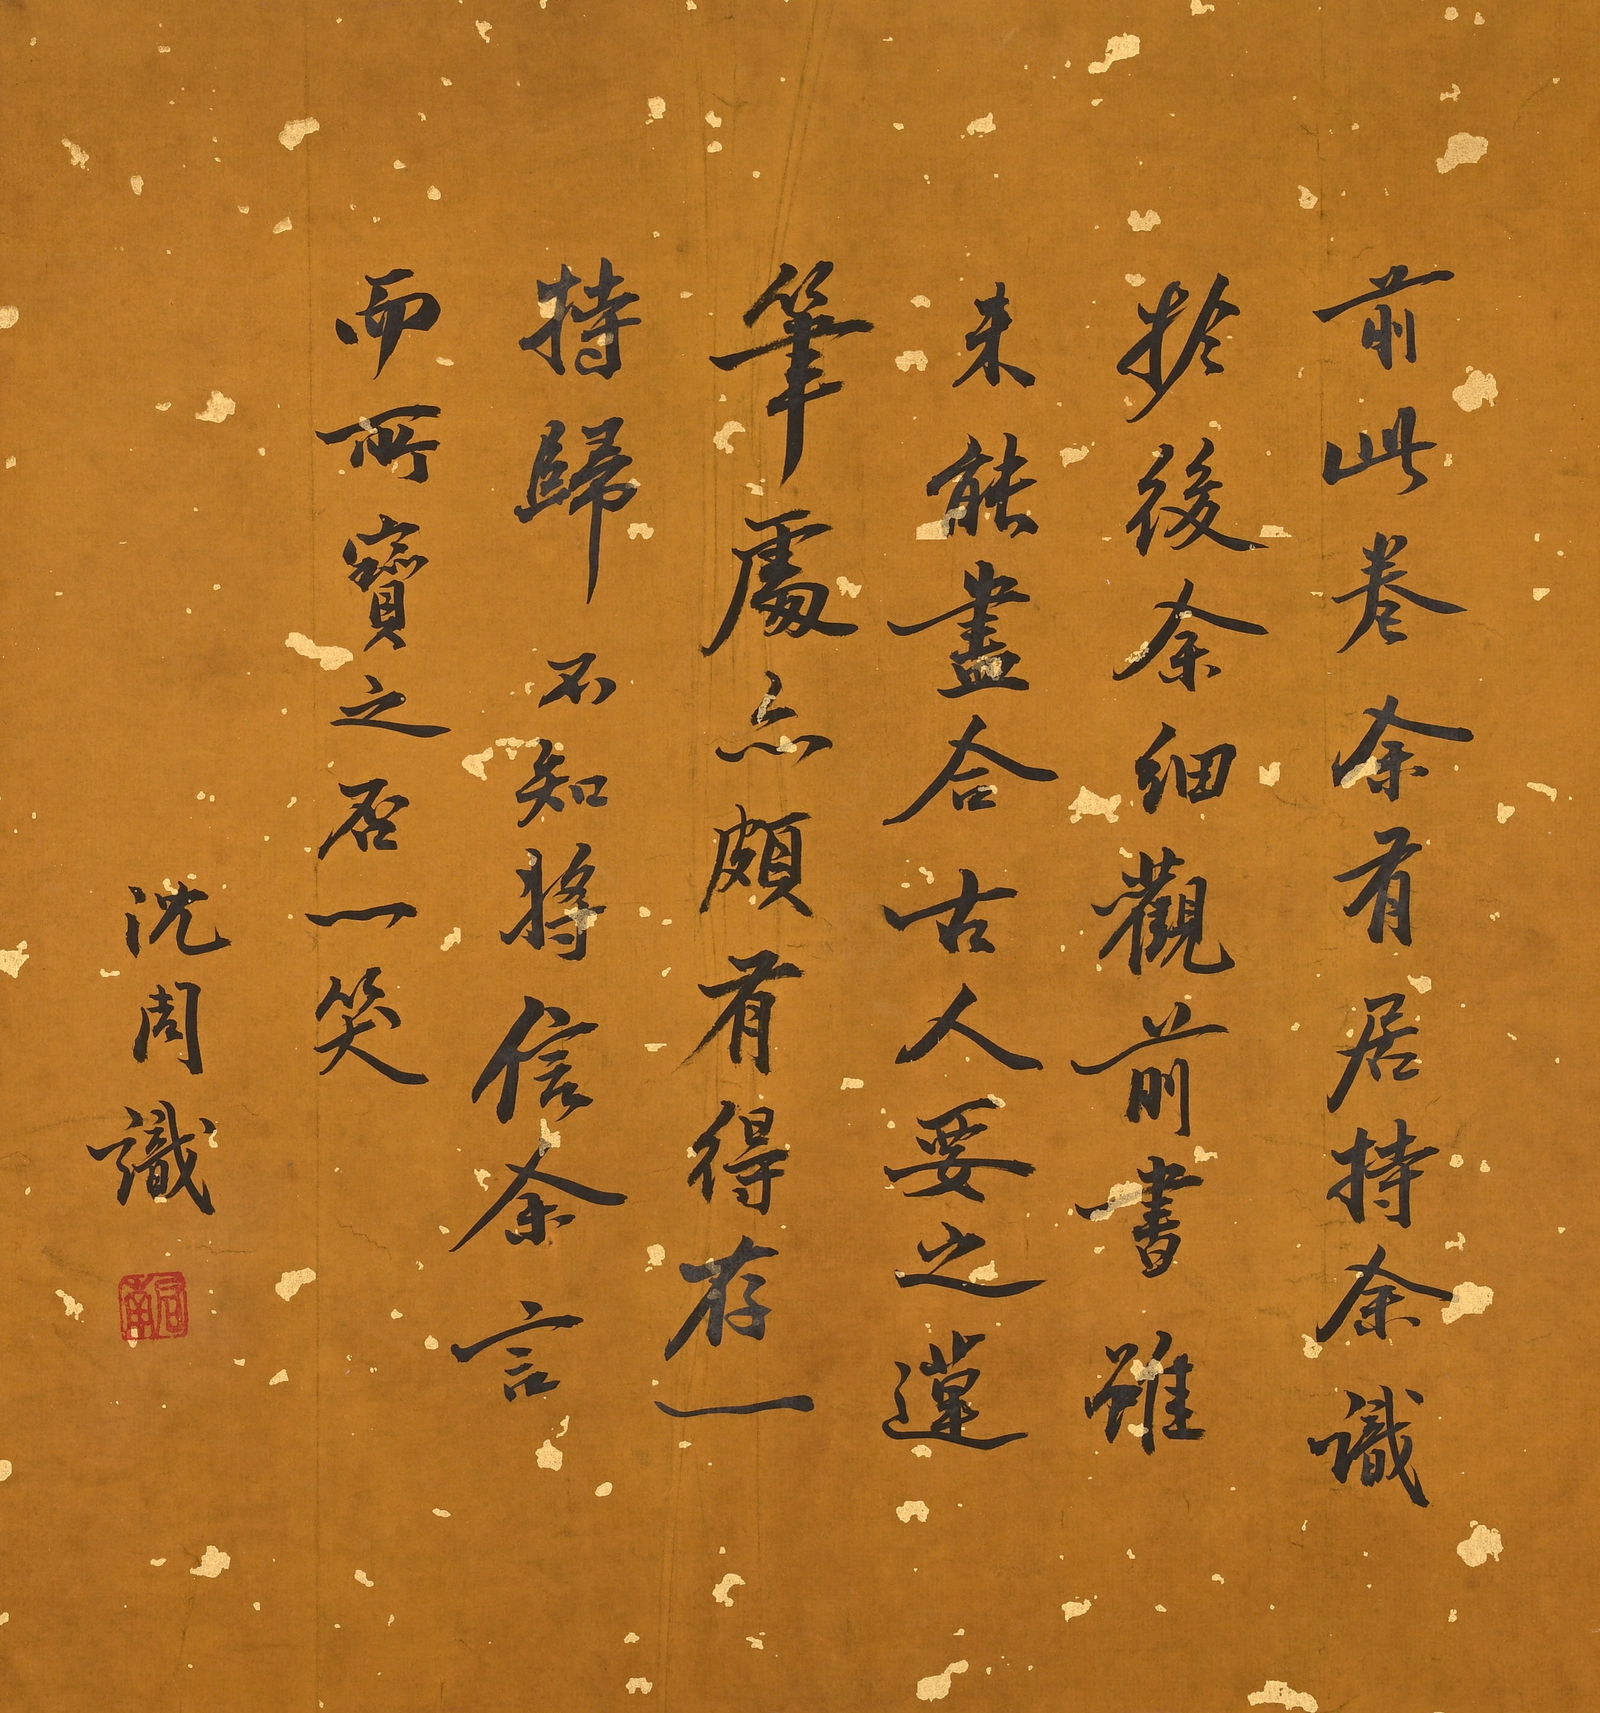 前此卷余有居持余識
於後余細觀前書雖
未能盡合古人妥之運
筆處亦頗有得存一
持歸不知將信余言
而所寶之否一笑
沈周識
啟南